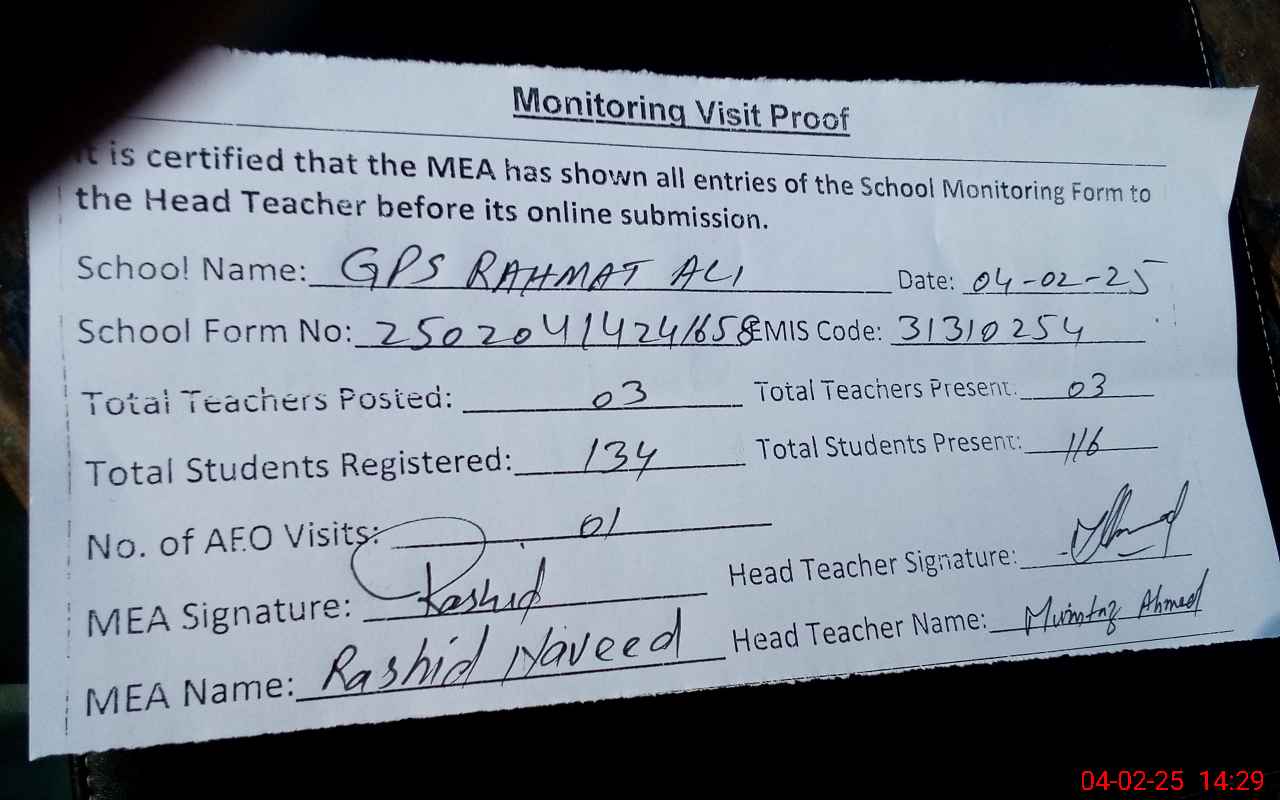 Monitoring Visit Proof
It is certified that the MEA has shown all entries of the School Monitoring Form to
the Head Teacher before its online submission.
School Name: GPS RAHMAT ALI Date: 04-02-25
School Form No: 25020414241658 EMIS Code: 31310254
Total Teachers Posted: 03 Total Teachers Present: 03
Total Students Registered: 134 Total Students Present: 116
No. of AEO Visits: 01
MEA Signature: Rashid Head Teacher Signature:
MEA Name: Rashid Naveed Head Teacher Name: Mumtaz Ahmed
04-02-25 14:29